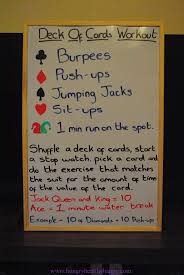 Deck Of Cards Workout
Burpees
Push-ups
Jumping Jacks
Sit-ups
1 min run on the spot.
Shuffle a deck of cards, start
a stop watch. pick a card and
do the exercise that matches
the suit for the amount of time
of the value of the card.
Jack Queen and King = 10
Ace - 1 minute water break
Example - 10 of Diamonds = 10 Push-ups